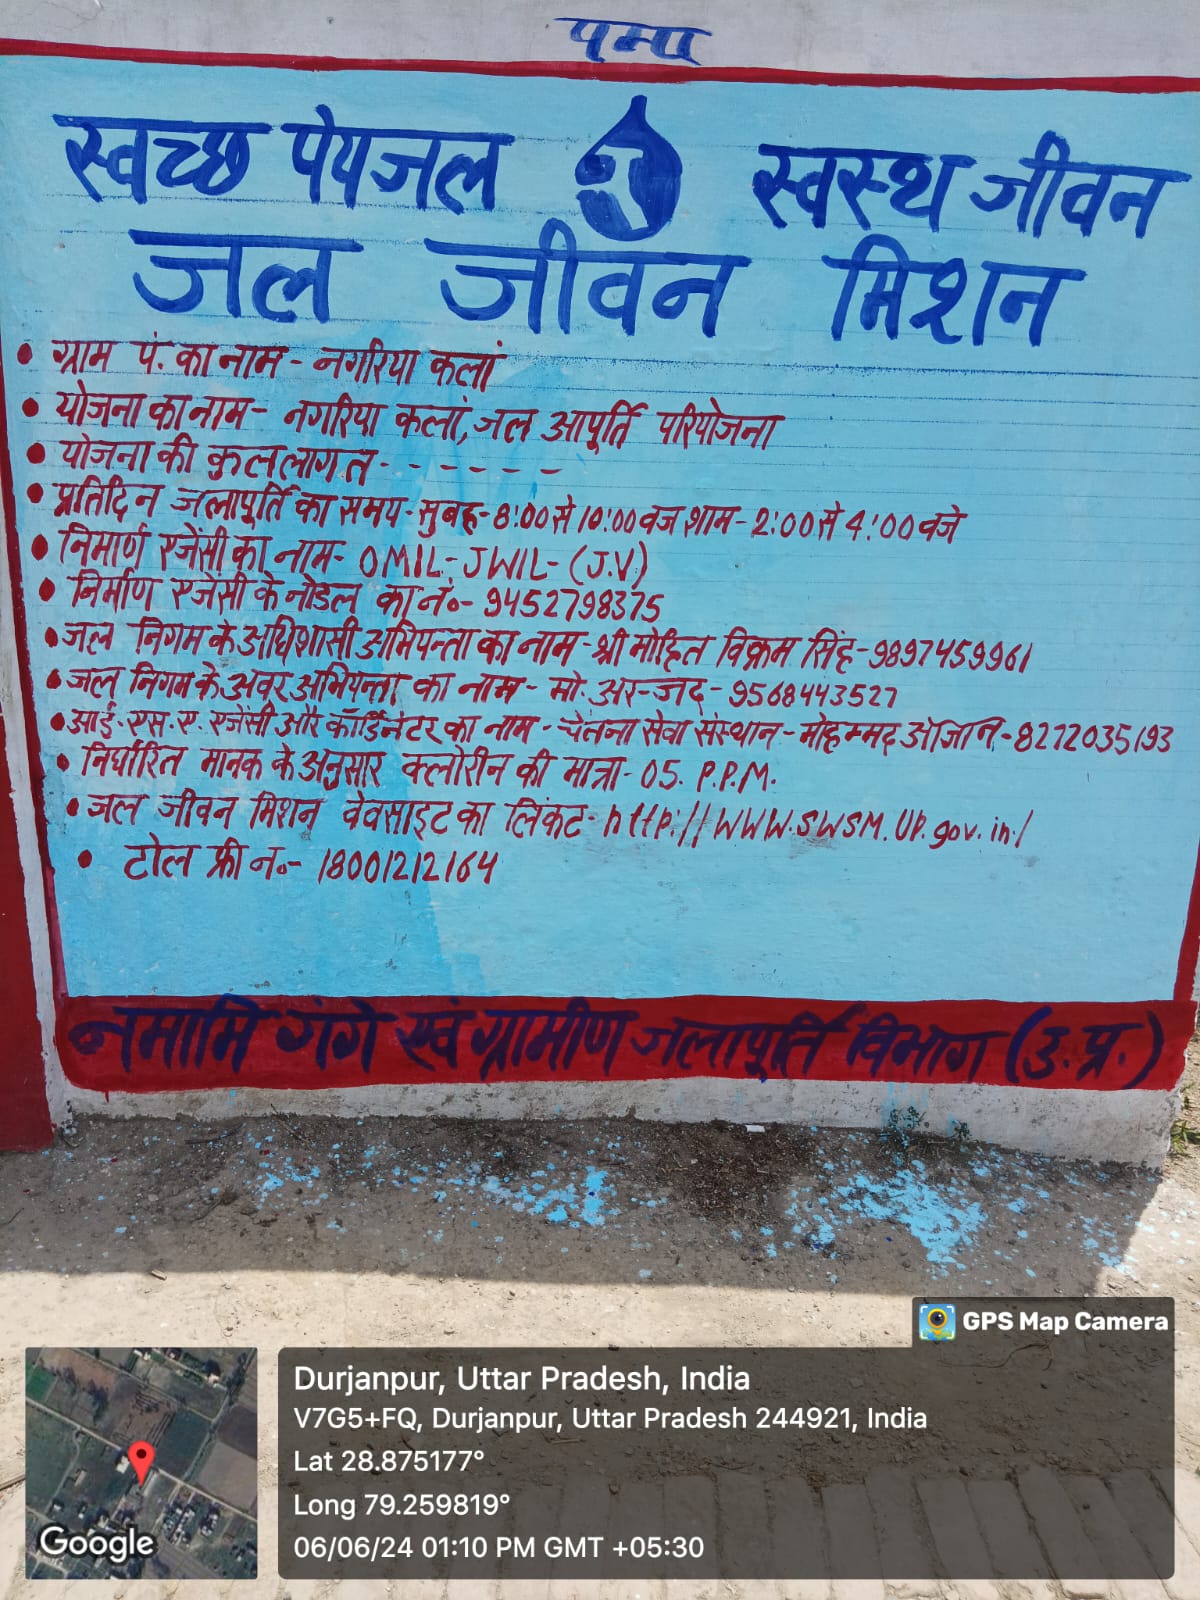 पमा
स्वच्छ पेयजल स्वस्थ जीवन
जल जीवन मिशन
• ग्राम पं. का नाम - नगरिया कलां
• योजना का नाम - नगरिया कलां, जल आपूर्ति परियोजना
• योजना की कुल लागत - - - - - - -
• प्रतिदिन जलापूर्ति का समय - सुबह - 8:00 से 10:00 वज शाम - 2:00 से 4:00 वजे
• निमार्ण एजेंसी का नाम - OMIL - JWIL - (J.V)
• निर्माण एजेंसी के नोडल का नं०- 9452798375
• जल निगम के अधिशासी अभियन्ता का नाम - श्री मोहित विक्रम सिंह - 9897459961
• जल निगम के अवर अभियन्ता का नाम - मो. अरन्जद - 9568443527
• आई. एस. ए. एजेंसी और कॉर्डिनेटर का नाम - चेतना सेवा संस्थान - मोहम्मद - 8272035193
• निर्धारित मानक के अनुसार क्लोरीन की मात्रा - 05. P.P.M.
• जल जीवन मिशन वेवसाइट का लिंकट - http://WWW.SWSM.UP.gov.in/
• टोल फ्री न०- 18001212164
नमामि गंगे एवं ग्रामीण जलापूर्ति विभाग (उ.प्र.)
GPS Map Camera
Durjanpur, Uttar Pradesh, India
V7G5+FQ, Durjanpur, Uttar Pradesh 244921, India
Lat 28.875177°
Long 79.259819°
06/06/24 01:10 PM GMT +05:30
Google